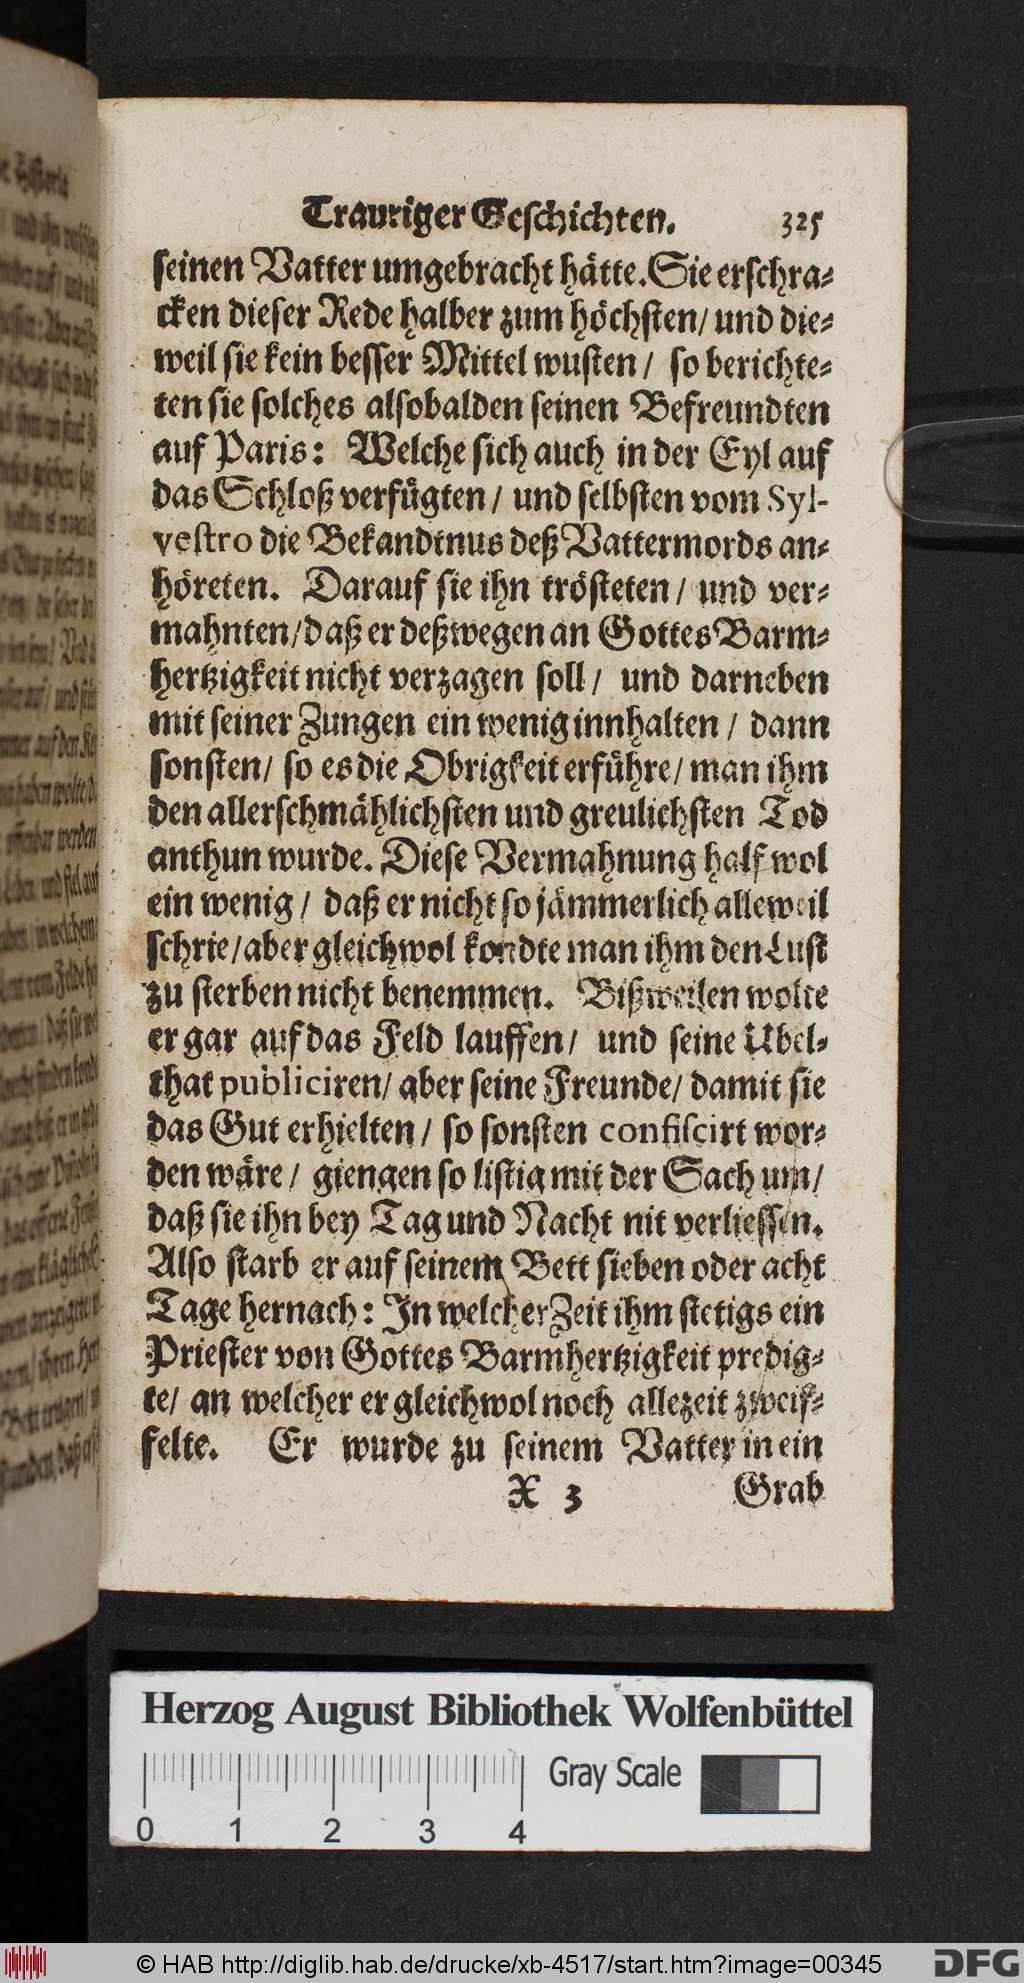 Trauriger Geſchichten. 325
ſeinen Vatter umgebracht hätte. Sie erſchra⸗
cken dieſer Rede halber zum höchſten/ und die⸗
weil ſie kein beſſer Mittel wuſten/ ſo berichte⸗
ten ſie ſolches alſobalden ſeinen Befreundten
auf Paris: Welche ſich auch in der Eyl auf
das Schloß verfügten/ und ſelbſten vom Syl-
veſtro die Bekandtnus deß Vattermords an⸗
höreten. Darauf ſie ihn tröſteten/ und ver⸗
mahnten/ daß er deßwegen an Gottes Barm⸗
hertzigkeit nicht verzagen ſoll/ und darneben
mit ſeiner Zungen ein wenig innhalten/ dann
ſonſten/ ſo es die Obrigkeit erführe/ man ihm
den allerſchmählichſten und greulichſten Tod
anthun wurde. Dieſe Vermahnung half wol
ein wenig/ daß er nicht ſo jämmerlich alleweil
ſchrie/ aber gleichwol kondte man ihm den Luſt
zu ſterben nicht benemmen. Bißweilen wolte
er gar auf das Feld lauffen/ und ſeine Übel⸗
that publiciren/ aber ſeine Freunde/ damit ſie
das Gut erhielten/ ſo ſonſten confiſcirt wor⸗
den wäre/ giengen ſo liſtig mit der Sach um/
daß ſie ihn bey Tag und Nacht nit verlieſſen.
Alſo ſtarb er auf ſeinem Bett ſieben oder acht
Tage hernach: In welcher Zeit ihm ſtetigs ein
Prieſter von Gottes Barmhertzigkeit predig⸗
te/ an welcher er gleichwol noch allezeit zweif⸗
felte. Er wurde zu ſeinem Vatter in ein
X 3 Grab
Herzog August Bibliothek Wolfenbüttel
Gray Scale
0 1 2 3 4
© HAB http://diglib.hab.de/drucke/xb-4517/start.htm?image=00345 DFG